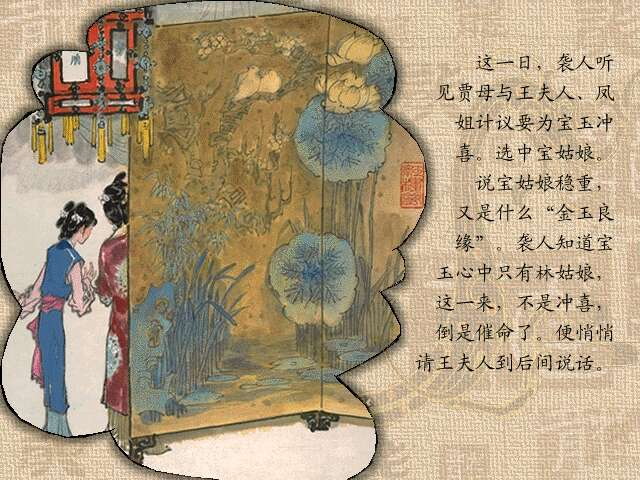 这一日，袭人听
见贾母与王夫人、凤
姐计议要为宝玉冲
喜。选中宝姑娘。
说宝姑娘稳重，
又是什么“金玉良
缘”。袭人知道宝
玉心中只有林姑娘，
这一来，不是冲喜，
倒是催命了。便悄悄
请王夫人到后间说话。